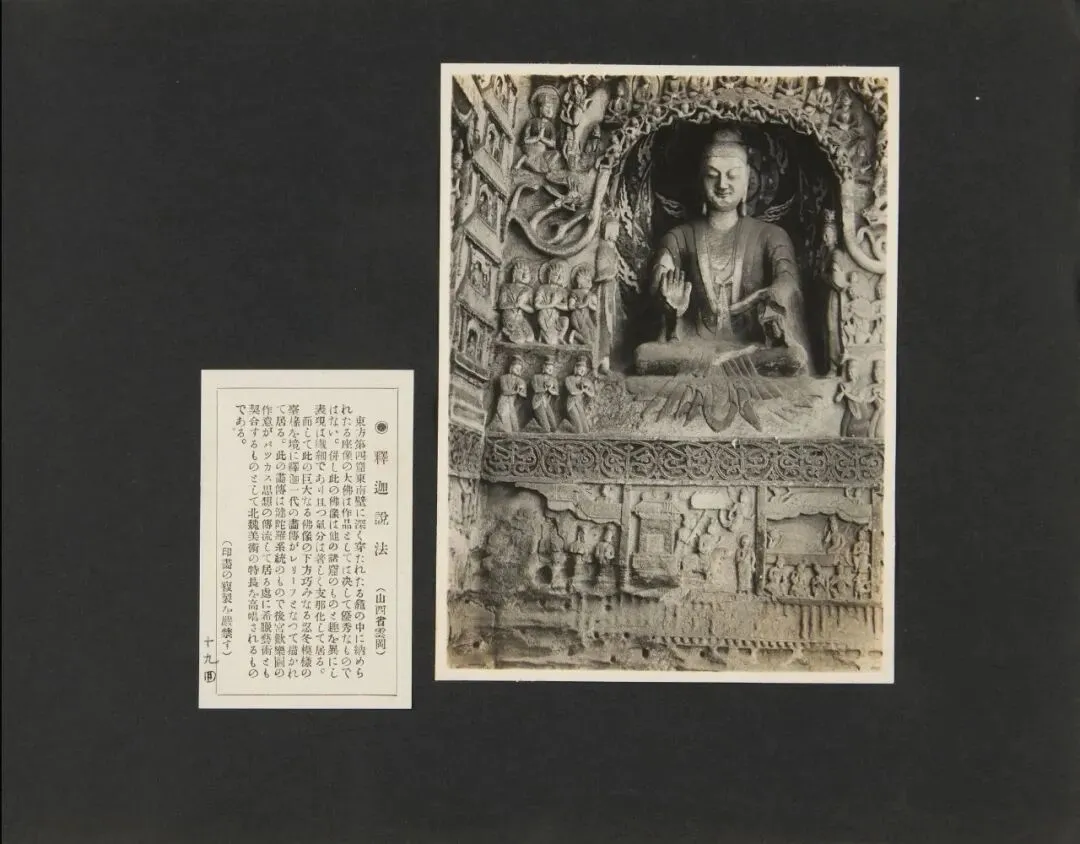 ◉ 釋迦說法 (山西省雲岡)
東方第四窟東南壁に深く穿たれたる龕の中に納めら
れたる座像の大佛は作品としては決して優秀なもので
はない。併し此の佛像は他の諸窟のものと趣を異にし
表現は纎細であり且つ氣分は著しく支那化して居る。
而して此の巨大なる佛像の下方巧みなる忍冬模樣の
臺樣を境に釋迦一代の畵傳がレリーフとなつて描かれ
て居る。此の畵傳は犍陀羅系統のもので後宮歡樂圖の
作意がバツカス思想の傳流して居る處に希臘藝術とも
契合するものとして北魏美術の特長を高唱されるもの
である。
(印畵の複製を嚴禁す)
十九